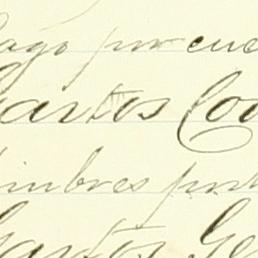 Pago por cue
Gastos Co
timbres po
Gastos Ge